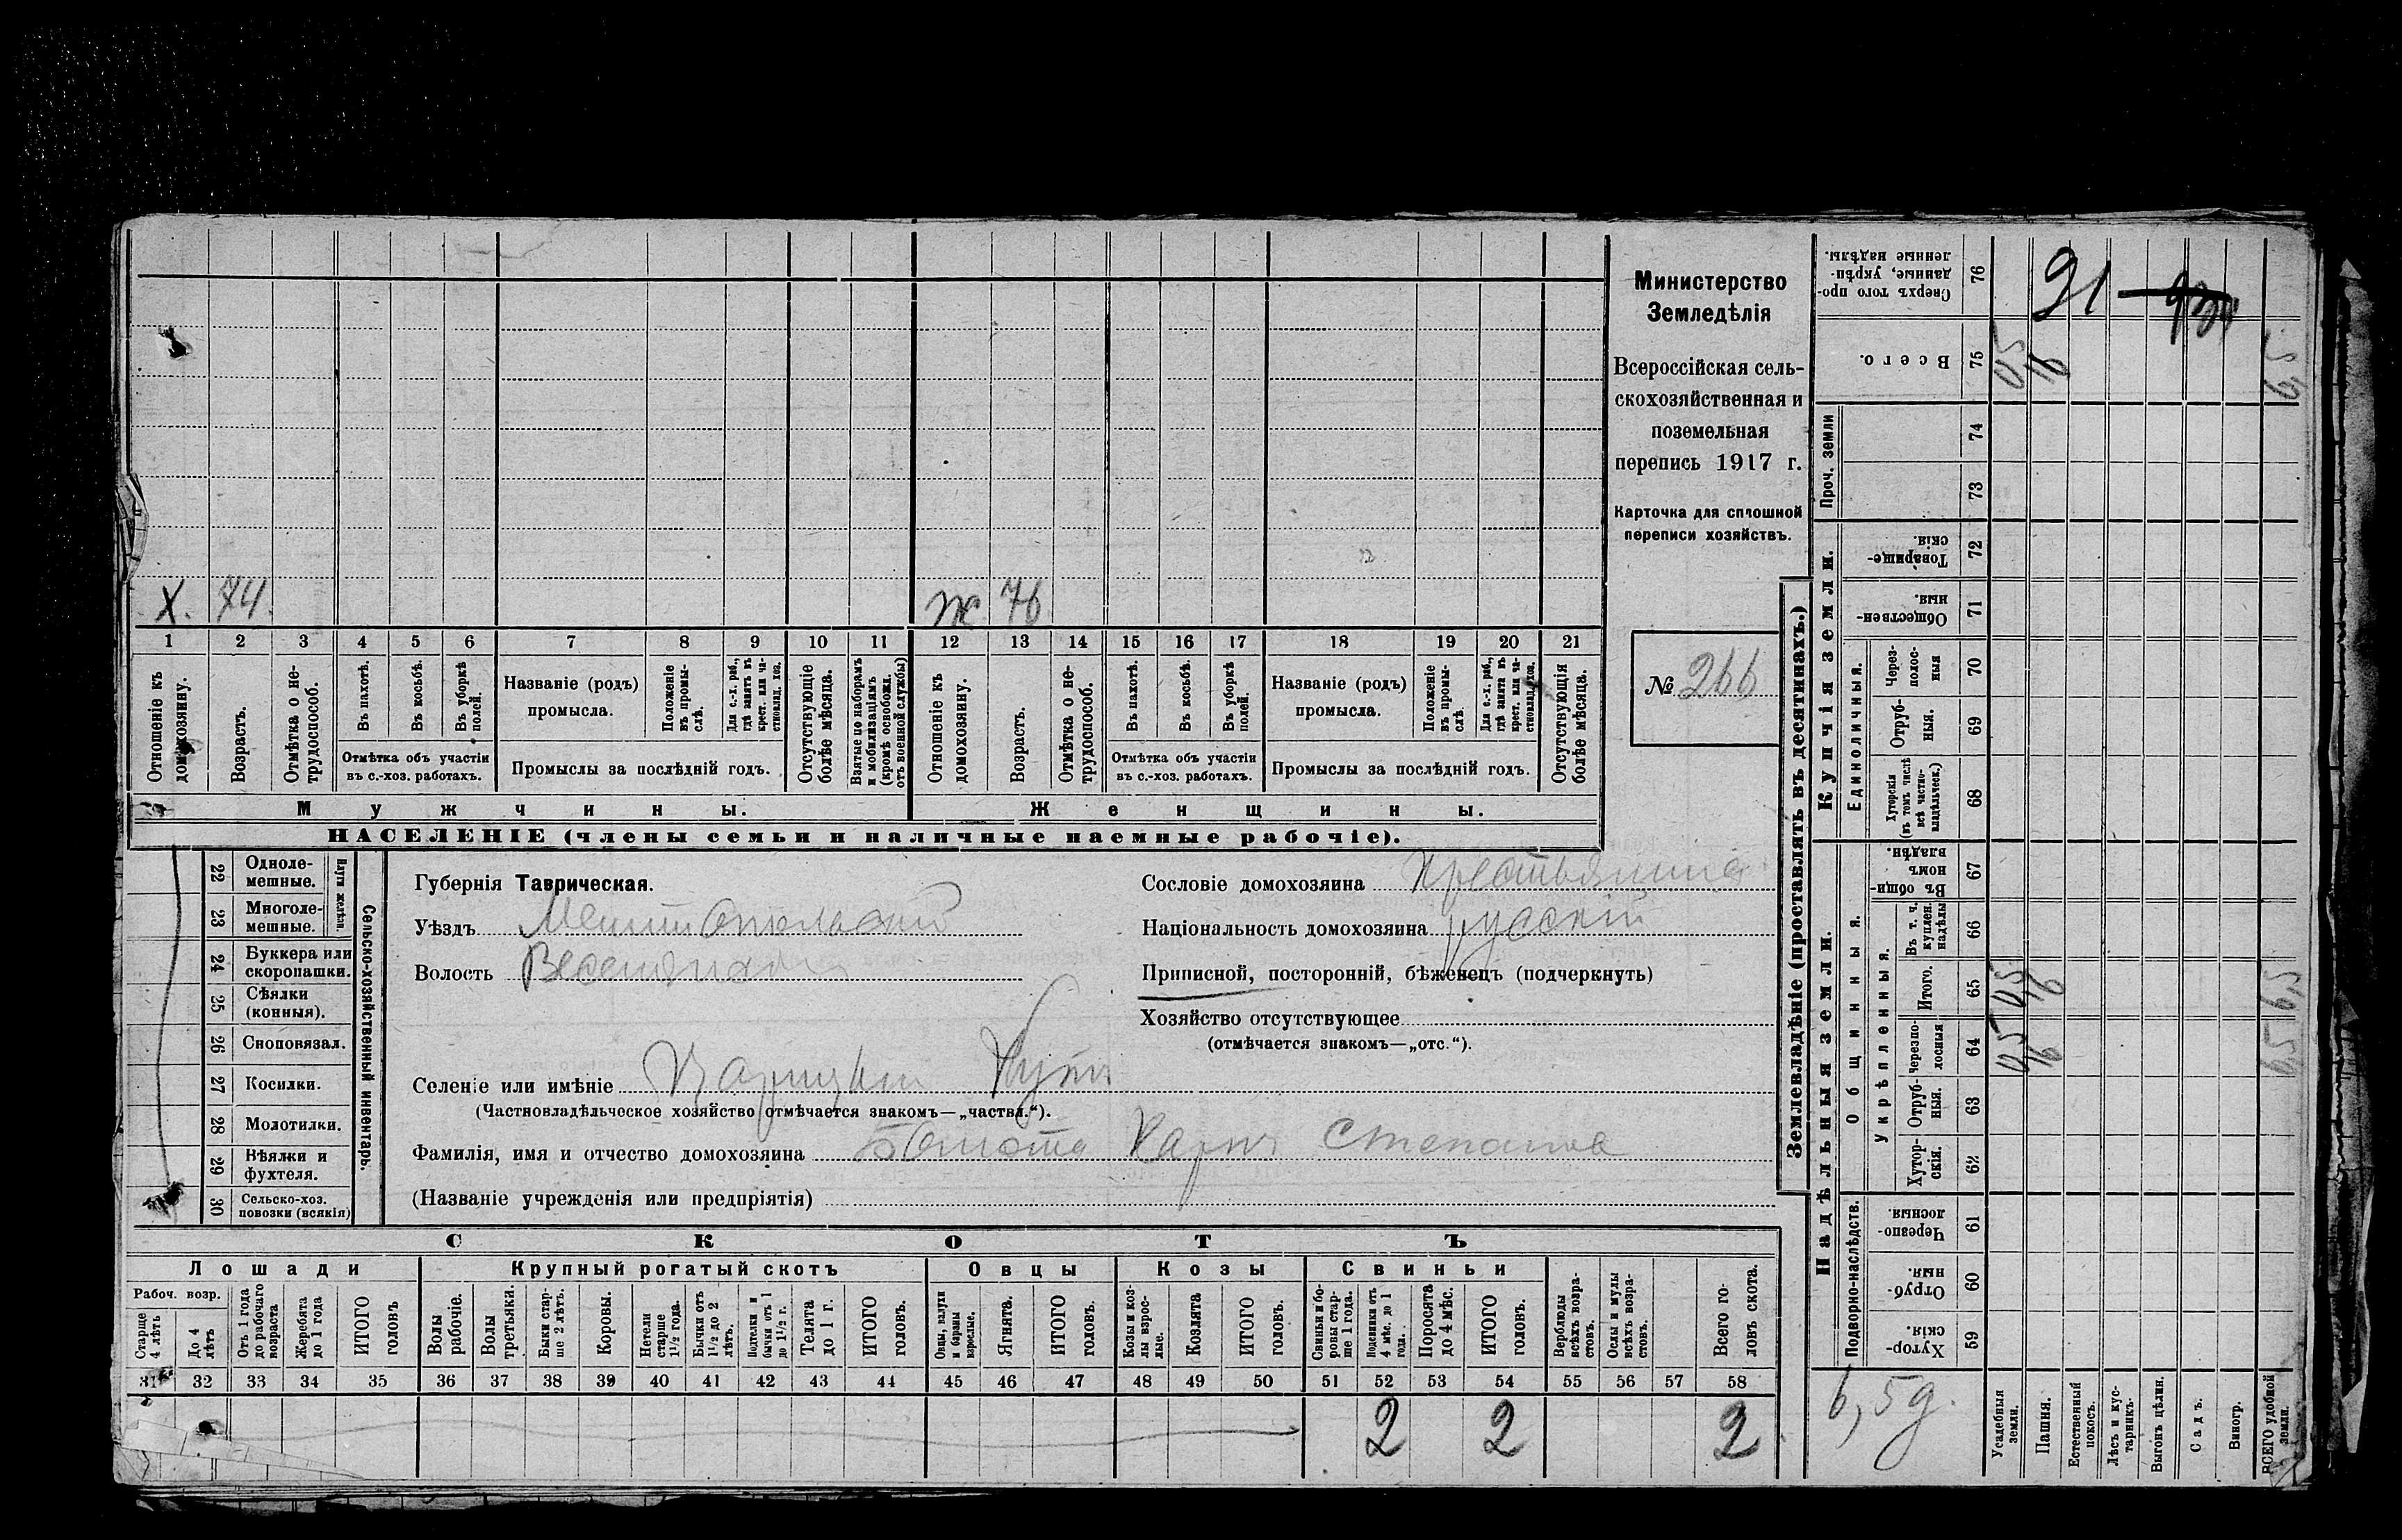 Министерство
Земледѣлія
Всероссійская сель-
скохозяйственная и
поземельная
перепись 1917 г.
Карточка для сплошной
переписи хозяйствъ.
№ 266
X. 74. ж 76
1 2 3 4 5 6 7 8 9 10 11 12 13 14 15 16 17 18 19 20 21
Отношеніе къ домохозяину.
Возрастъ.
Отмѣтка о не-трудоспособ.
Въ пахотѣ.
Въ косьбѣ.
Въ уборкѣ полей.
Отмѣтка объ участіи
въ с.-хоз. работахъ.
Названіе (родъ)
промысла.
Положеніе въ промы-слѣ.
Для с.-х. раб., гдѣ занятъ въ крест. или ча-стновлад. хоз.
Промыслы за послѣдній годъ.
Отсутствующіе болѣе мѣсяца.
Взятые по наборамъ и мобилизаціямъ (кромѣ освобожд. отъ военной службы)
Отношеніе къ домохозяину.
Возрастъ.
Отмѣтка о не-трудоспособ.
Въ пахотѣ.
Въ косьбѣ.
Въ уборкѣ полей.
Отмѣтка объ участіи
въ с.-хоз. работахъ.
Названіе (родъ)
промысла.
Положеніе въ промы-слѣ.
Для с.-х. раб., гдѣ занята въ крест. или ча-стновлад. хоз.
Промыслы за послѣдній годъ.
Отсутствующія болѣе мѣсяца.
Мужчины.
Женщины.
НАСЕЛЕНІЕ (члены семьи и наличные наемные рабочіе).
22 Одноле-мешные.
23 Многоле-мешные.
24 Буккера или скоропашки.
25 Сѣялки (конныя).
26 Сноповязал.
27 Косилки.
28 Молотилки.
29 Вѣялки и фухтеля.
30 Сельско-хоз. повозки (всякія)
Сельско-хозяйственный инвентарь.
Губернія Таврическая.
Уѣздъ Мелитопольскій
Волость
Сословіе домохозяина крестьянинъ
Національность домохозяина русскій
Приписной, посторонній, бѣженецъ (подчеркнуть)
Хозяйство отсутствующее
(отмѣчается знакомъ—„отс.“).
Селеніе или имѣніе Царицынъ Кутъ
(Частновладѣльческое хозяйство отмѣчается знакомъ—„частвл.“).
Фамилія, имя и отчество домохозяина Карпъ Степановъ
(Названіе учрежденія или предпріятія)
СКОТЪ
Лошади
Крупный рогатый скотъ
Овцы
Козы
Свиньи
Рабоч. возр.
Старше 4 лѣтъ
До 4 лѣтъ
Отъ 1 года до рабочаго возраста
Жеребята до 1 года
ИТОГО головъ
Волы рабочіе.
Волы третьяки.
Быки стар-ше 2 лѣтъ.
Коровы.
Нетели старше 1½ года.
Бычки отъ 1½ до 2 лѣтъ.
Подтелки и бычки отъ 1 до 1½ г.
Телята до 1 г.
ИТОГО головъ.
Овцы, валухи и бараны взрослые.
Ягнята.
ИТОГО головъ.
Козы и коз-лы взрос-лые.
Козлята
ИТОГО головъ.
Свиньи и бо-ровы стар-ше 1 года.
Подсвинки отъ 4 мѣс. до 1 года.
Поросята до 4 мѣс.
ИТОГО головъ.
Верблюды всѣхъ возра-стовъ.
Ослы и мулы всѣхъ возра-стовъ.
Всего го-ловъ скота.
31 32 33 34 35 36 37 38 39 40 41 42 43 44 45 46 47 48 49 50 51 52 53 54 55 56 57 58
2 2 2
Землевладѣніе (проставлять въ десятинахъ.)
Сверхъ того про-данные, укрѣп-ленные надѣлы. 76
91
Всего. 75
Проч. земли
74
73
Купчія земли.
Товарище-скія. 72
Общественныя. 71
Единоличныя.
Через-полос-ныя 70
Отруб-ныя. 69
Хуторскія (въ томъ числѣ всѣ частно-владѣльческ.) 68
Надѣльныя земли.
Общинныя.
Въ общи-номъ владѣн. 67
Укрѣпленныя.
Въ т. ч. куплен. надѣлы 66
Итого. 65
Черезпо-лосныя 64
Отруб-ныя. 63
Хутор-скія. 62
Подворно-наслѣдств.
Черезпо-лосныя 61
Отруб-ныя. 60
Хутор-скія. 59
6,5 д.
Усадебныя земли.
Пашня.
Естественный покосъ.
Лѣсъ и кус-тарникъ.
Выгонъ цѣлин.
Садъ.
Виногр.
ВСЕГО удобной земли.